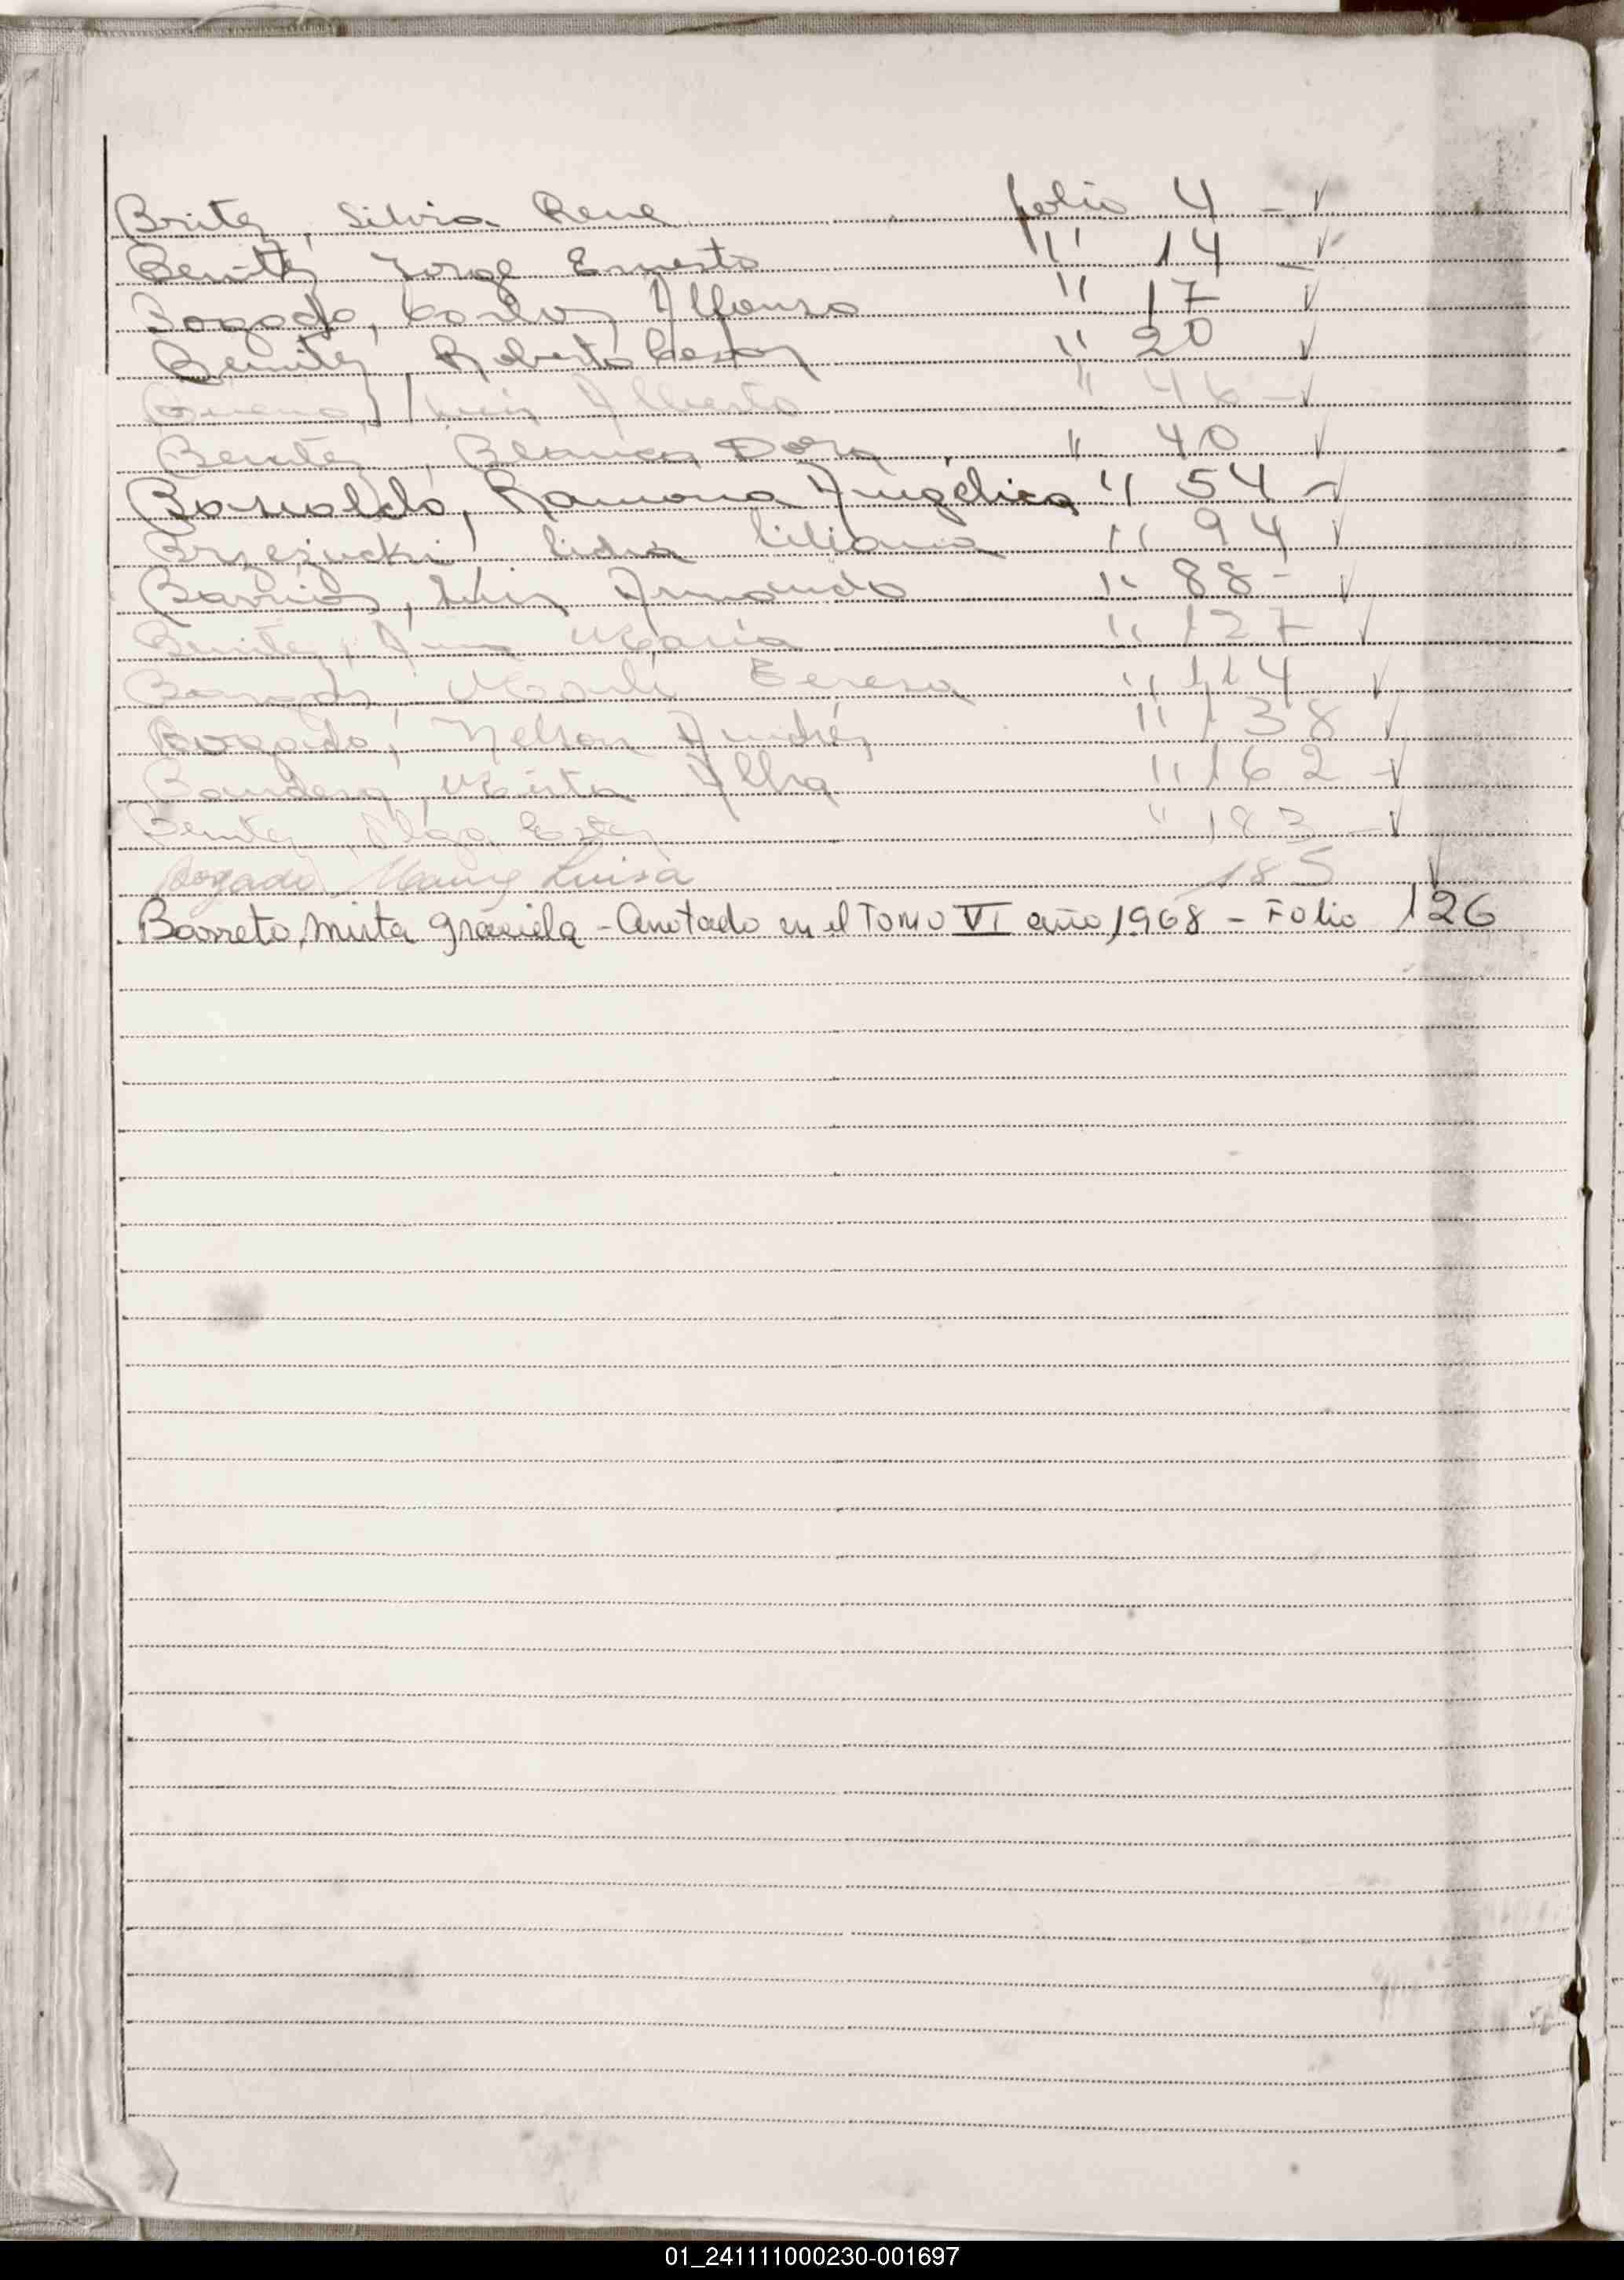 Britez, Silvia Rene folio 4 - ✓
Benitez Jorge Ernesto " 14 - ✓
Bogado, Carlos Alfonso " 17 ✓
Benitez, Roberto Cesar " 20 ✓
Bueno, Luis Alberto " 46 - ✓
Benitez, Blanca Dora " 40 ✓
Basualdo, Ramona Angélica " 54 - ✓
Brzezucki Lidia Liliana " 94 ✓
Barrios, Luis Armando " 88 - ✓
Benitez, Ana Maria " 127 ✓
Teresa " 114 ✓
Bogado, Nelson Andrés " 138 ✓
Bandera, Mirta Alba " 162 - ✓
Benitez, Olga Ester " 183 - ✓
Bogado Luisa 185 ✓
Barreto, Mirta Graciela - Anotado en el Tomo VI año 1968 - Folio 126
01_241111000230-001697